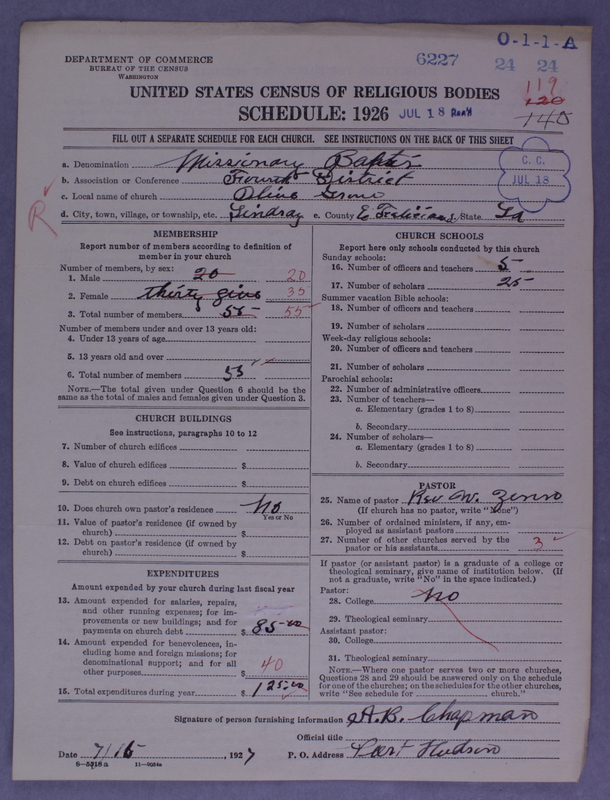 O-1-1-A
DEPARTMENT OF COMMERCE
BUREAU OF THE CENSUS
WASHINGTON
6227
24 24
119
120
140
UNITED STATES CENSUS OF RELIGIOUS BODIES
SCHEDULE: 1926
JUL 18 Rec'd
FILL OUT A SEPARATE SCHEDULE FOR EACH CHURCH. SEE INSTRUCTIONS ON THE BACK OF THIS SHEET
C. C.
JUL 18
R
a. Denomination Missionary Baptist
b. Association or Conference Fourth District
c. Local name of church Olive Grove
d. City, town, village, or township, etc. Lindsay e. County E. Feliciana f. State La
MEMBERSHIP
Report number of members according to definition of member in your church
Number of members, by sex:
1. Male 20 20
2. Female thirty five 35
3. Total number of members 55 55
Number of members under and over 13 years old:
4. Under 13 years of age
5. 13 years old and over
6. Total number of members 55
NOTE.—The total given under Question 6 should be the same as the total of males and females given under Question 3.
CHURCH BUILDINGS
See instructions, paragraphs 10 to 12
7. Number of church edifices
8. Value of church edifices $
9. Debt on church edifices $
10. Does church own pastor's residence No
Yes or No
11. Value of pastor's residence (if owned by church) $
12. Debt on pastor's residence (if owned by church) $
EXPENDITURES
Amount expended by your church during last fiscal year
13. Amount expended for salaries, repairs, and other running expenses; for improvements or new buildings; and for payments on church debt $ 85.00
14. Amount expended for benevolences, including home and foreign missions; for denominational support; and for all other purposes $ 40
15. Total expenditures during year $ 125.00
CHURCH SCHOOLS
Report here only schools conducted by this church
Sunday schools:
16. Number of officers and teachers 5
17. Number of scholars 25
Summer vacation Bible schools:
18. Number of officers and teachers
19. Number of scholars
Week-day religious schools:
20. Number of officers and teachers
21. Number of scholars
Parochial schools:
22. Number of administrative officers
23. Number of teachers—
a. Elementary (grades 1 to 8)
b. Secondary
24. Number of scholars—
a. Elementary (grades 1 to 8)
b. Secondary
PASTOR
25. Name of pastor Rev W.
(If church has no pastor, write "None")
26. Number of ordained ministers, if any, employed as assistant pastors
27. Number of other churches served by the pastor or his assistants 3
If pastor (or assistant pastor) is a graduate of a college or theological seminary, give name of institution below. (If not a graduate, write "No" in the space indicated.)
Pastor:
28. College No
29. Theological seminary
Assistant pastor:
30. College
31. Theological seminary
NOTE.—Where one pastor serves two or more churches, Questions 28 and 29 should be answered only on the schedule for one of the churches; on the schedules for the other churches, write "See schedule for church."
Signature of person furnishing information A.B. Chapman
Official title
Date 7/15, 1927 P. O. Address Port Hudson
8—5318a 11—9054a